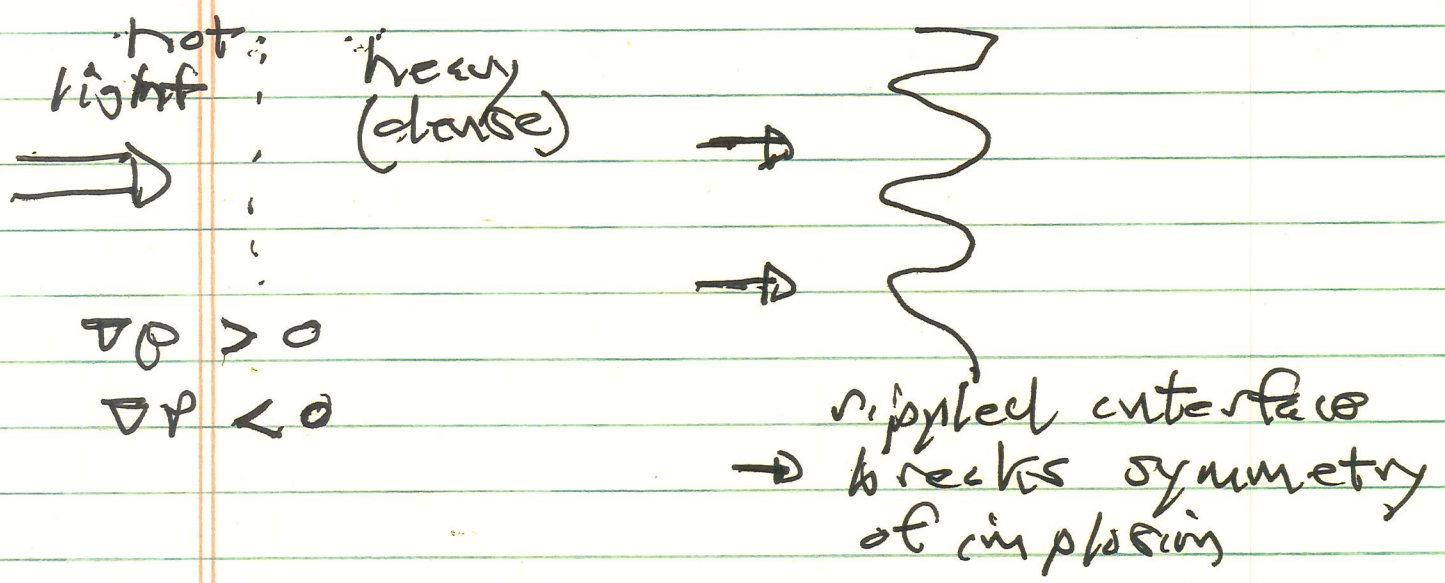 hot
light
heavy
(dense)
∇ρ > 0
∇P < 0
rippled interface
→ breaks symmetry
of implosion